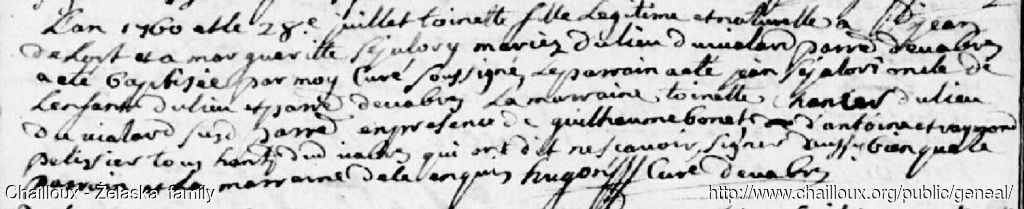 L'an 1760 et le 28e juillet toinette fille Legitime et naturelle a jean
de Lost et a margueritte sejalory mariez du lieu du vialard parre de vabres
a eté baptisée par moy Curé soussigné, Le parrain a eté jean sejalori oncle de
L'enfant du lieu et parre de vabres La marraine toinette chanier du lieu
du vialard susd parre en presence de guilhaume bonet d'antoine et raymond
pelissier tous habts dud vabres qui ont dit ne scavoir signer aussy bien que le
parrain et la marraine de le enquis hugon Curé de vabres
Chailloux - Zelaska family
http://www.chailloux.org/public/geneal/